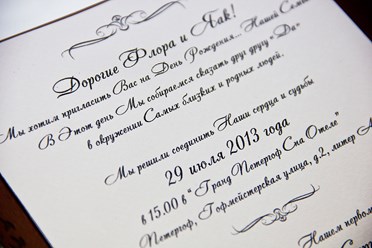 Дорогие Флора и Яак!
Мы хотим пригласить Вас на День Рождения... Нашей Семьи
В Этот день Мы собираемся сказать друг другу «Да»
в окружении Самых близких и родных людей.
Мы решили соединить Наши сердца и судьбы
29 июля 2013 года
в 15.00 в "Гранд Петергоф Спа Отеле"
Петергоф, Гофмейстерская улица, д.2, литер А
Нашем первом